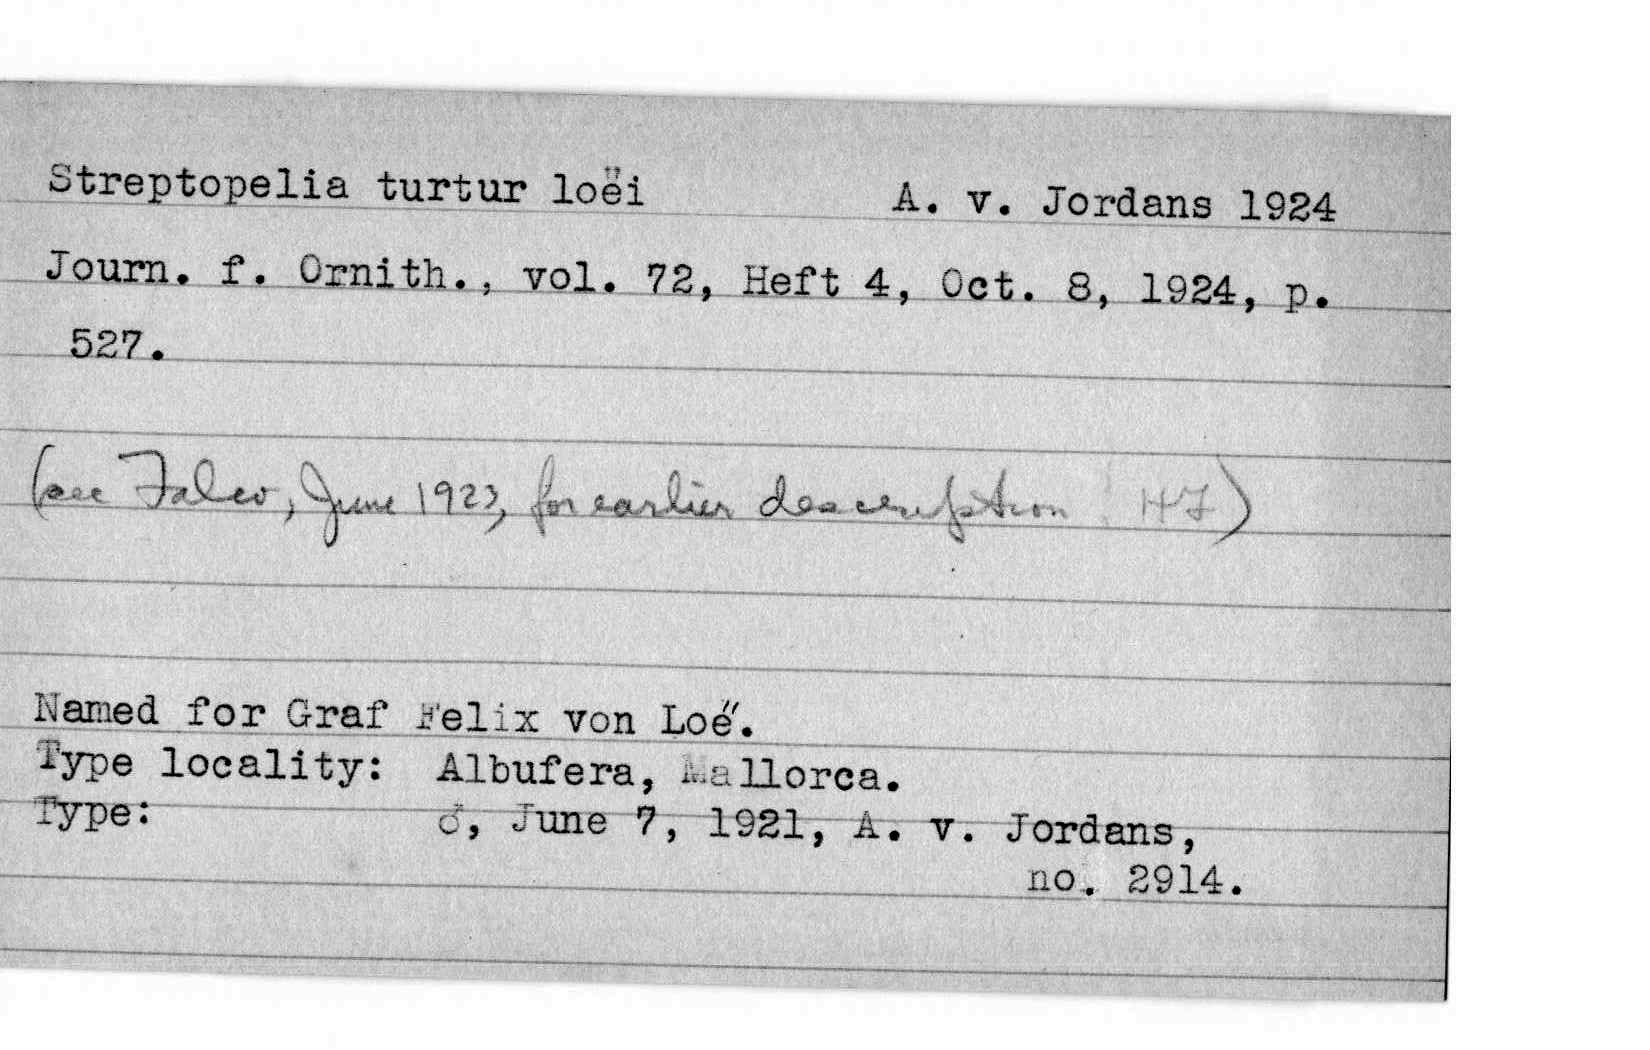 Streptopelia turtur loëi A. v. Jordans 1924
Journ. f. Ornith., vol. 72, Heft 4, Oct. 8, 1924, p.
527.
(see Falco, June 1923, for earlier description HF)
Named for Graf Felix von Loë.
Type locality: Albufera, Mallorca.
Type: ♂, June 7, 1921, A. v. Jordans,
no. 2914.